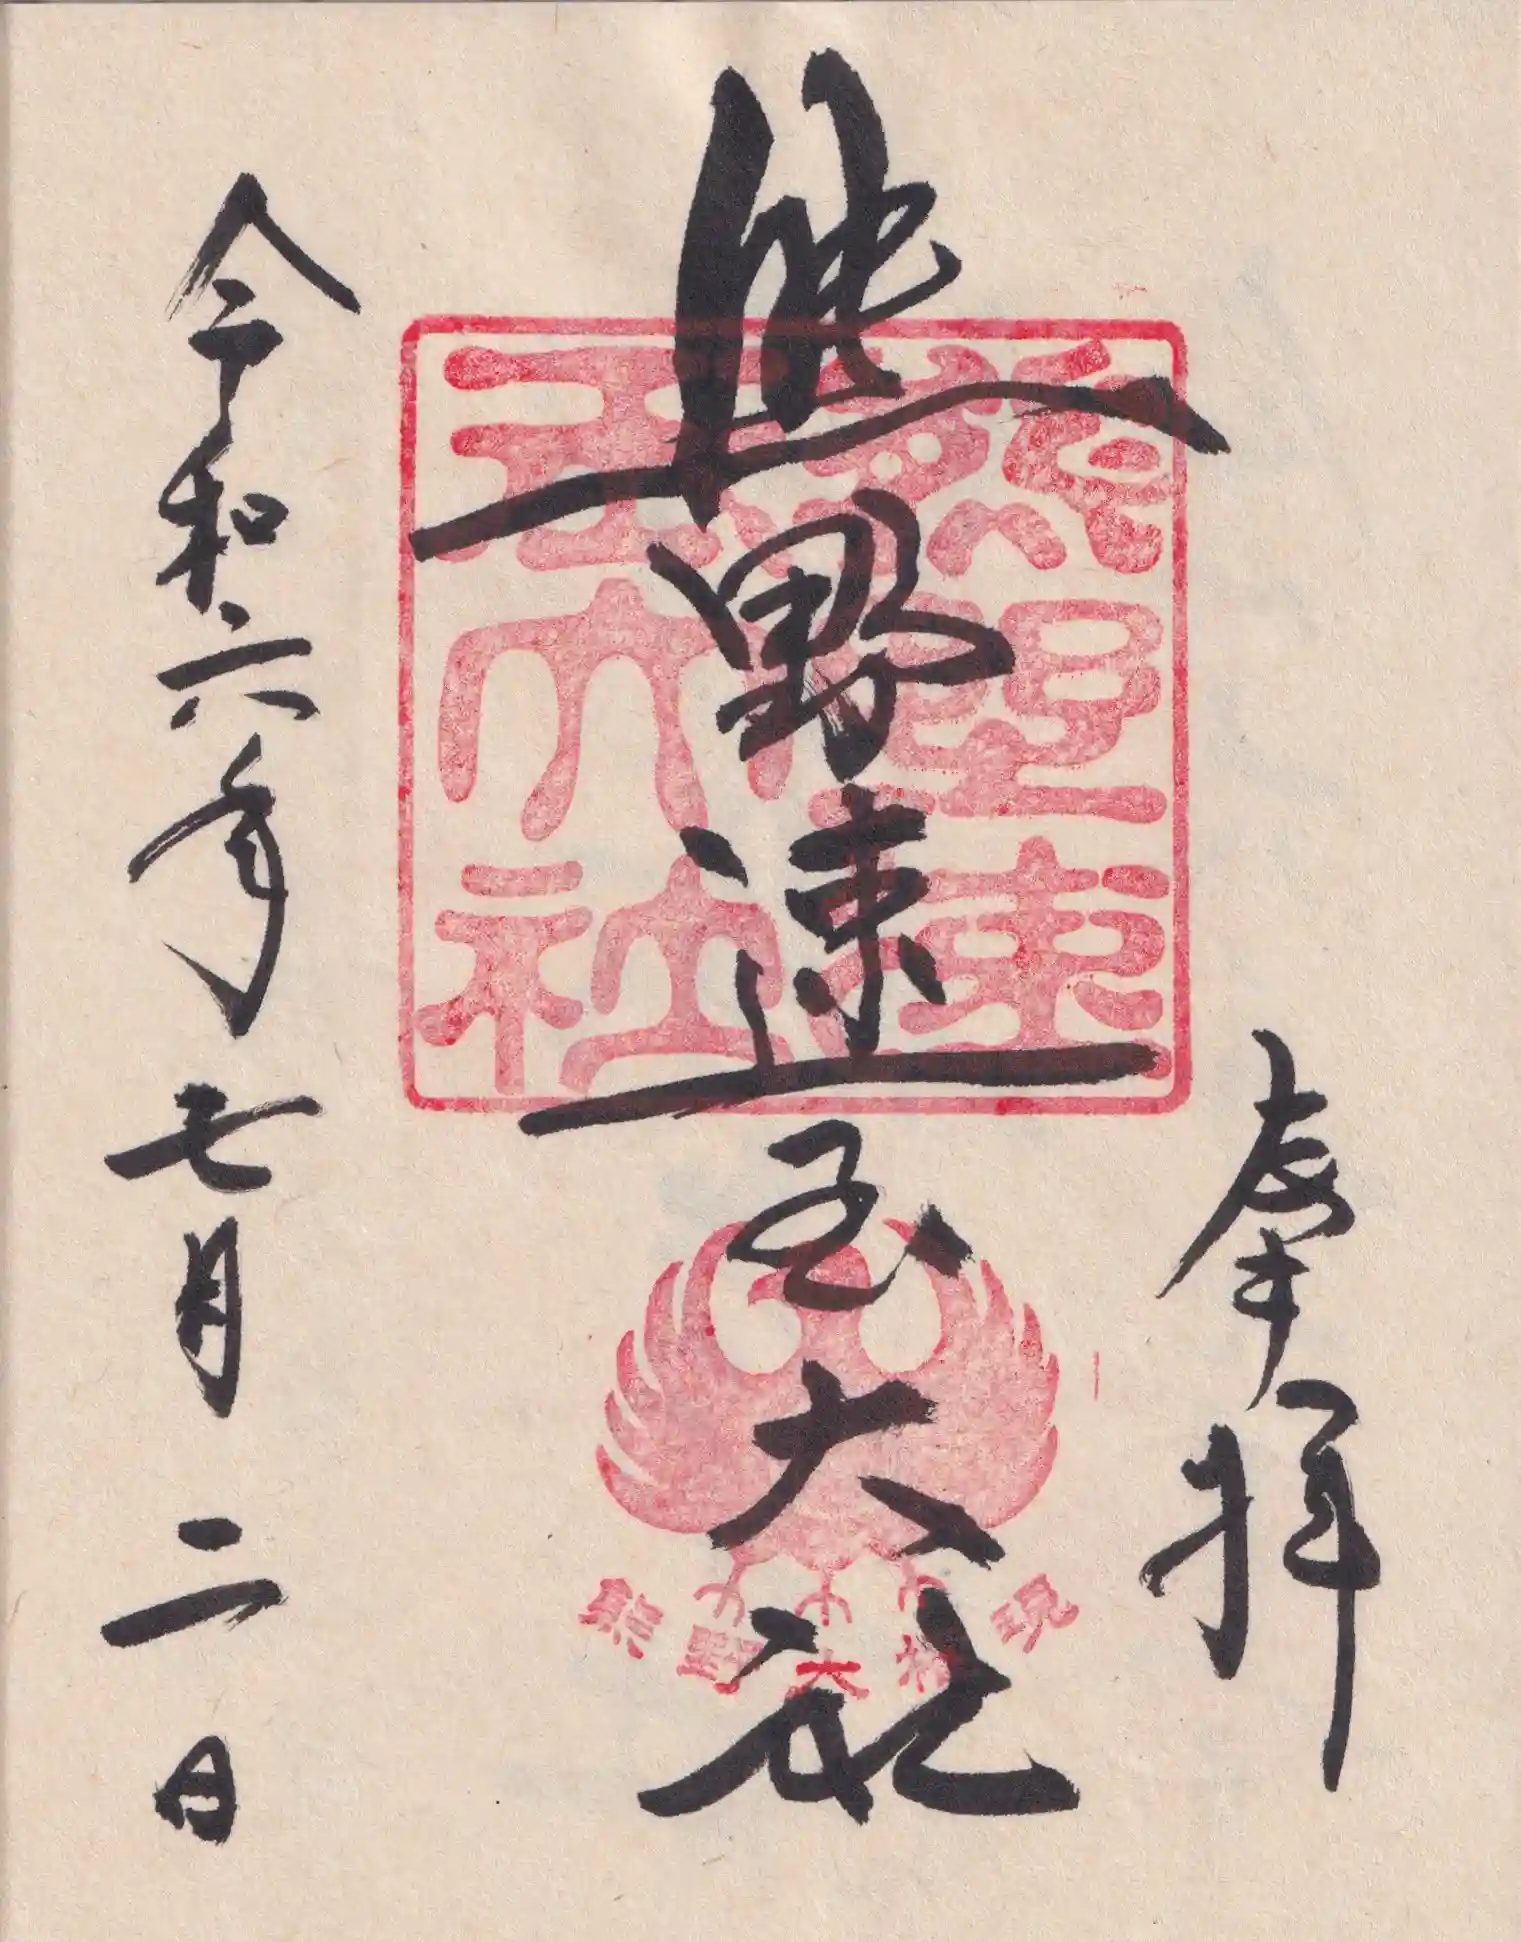 奉拝
熊野速玉大社
熊野速
玉大社
熊野大権現
令和六年七月二日